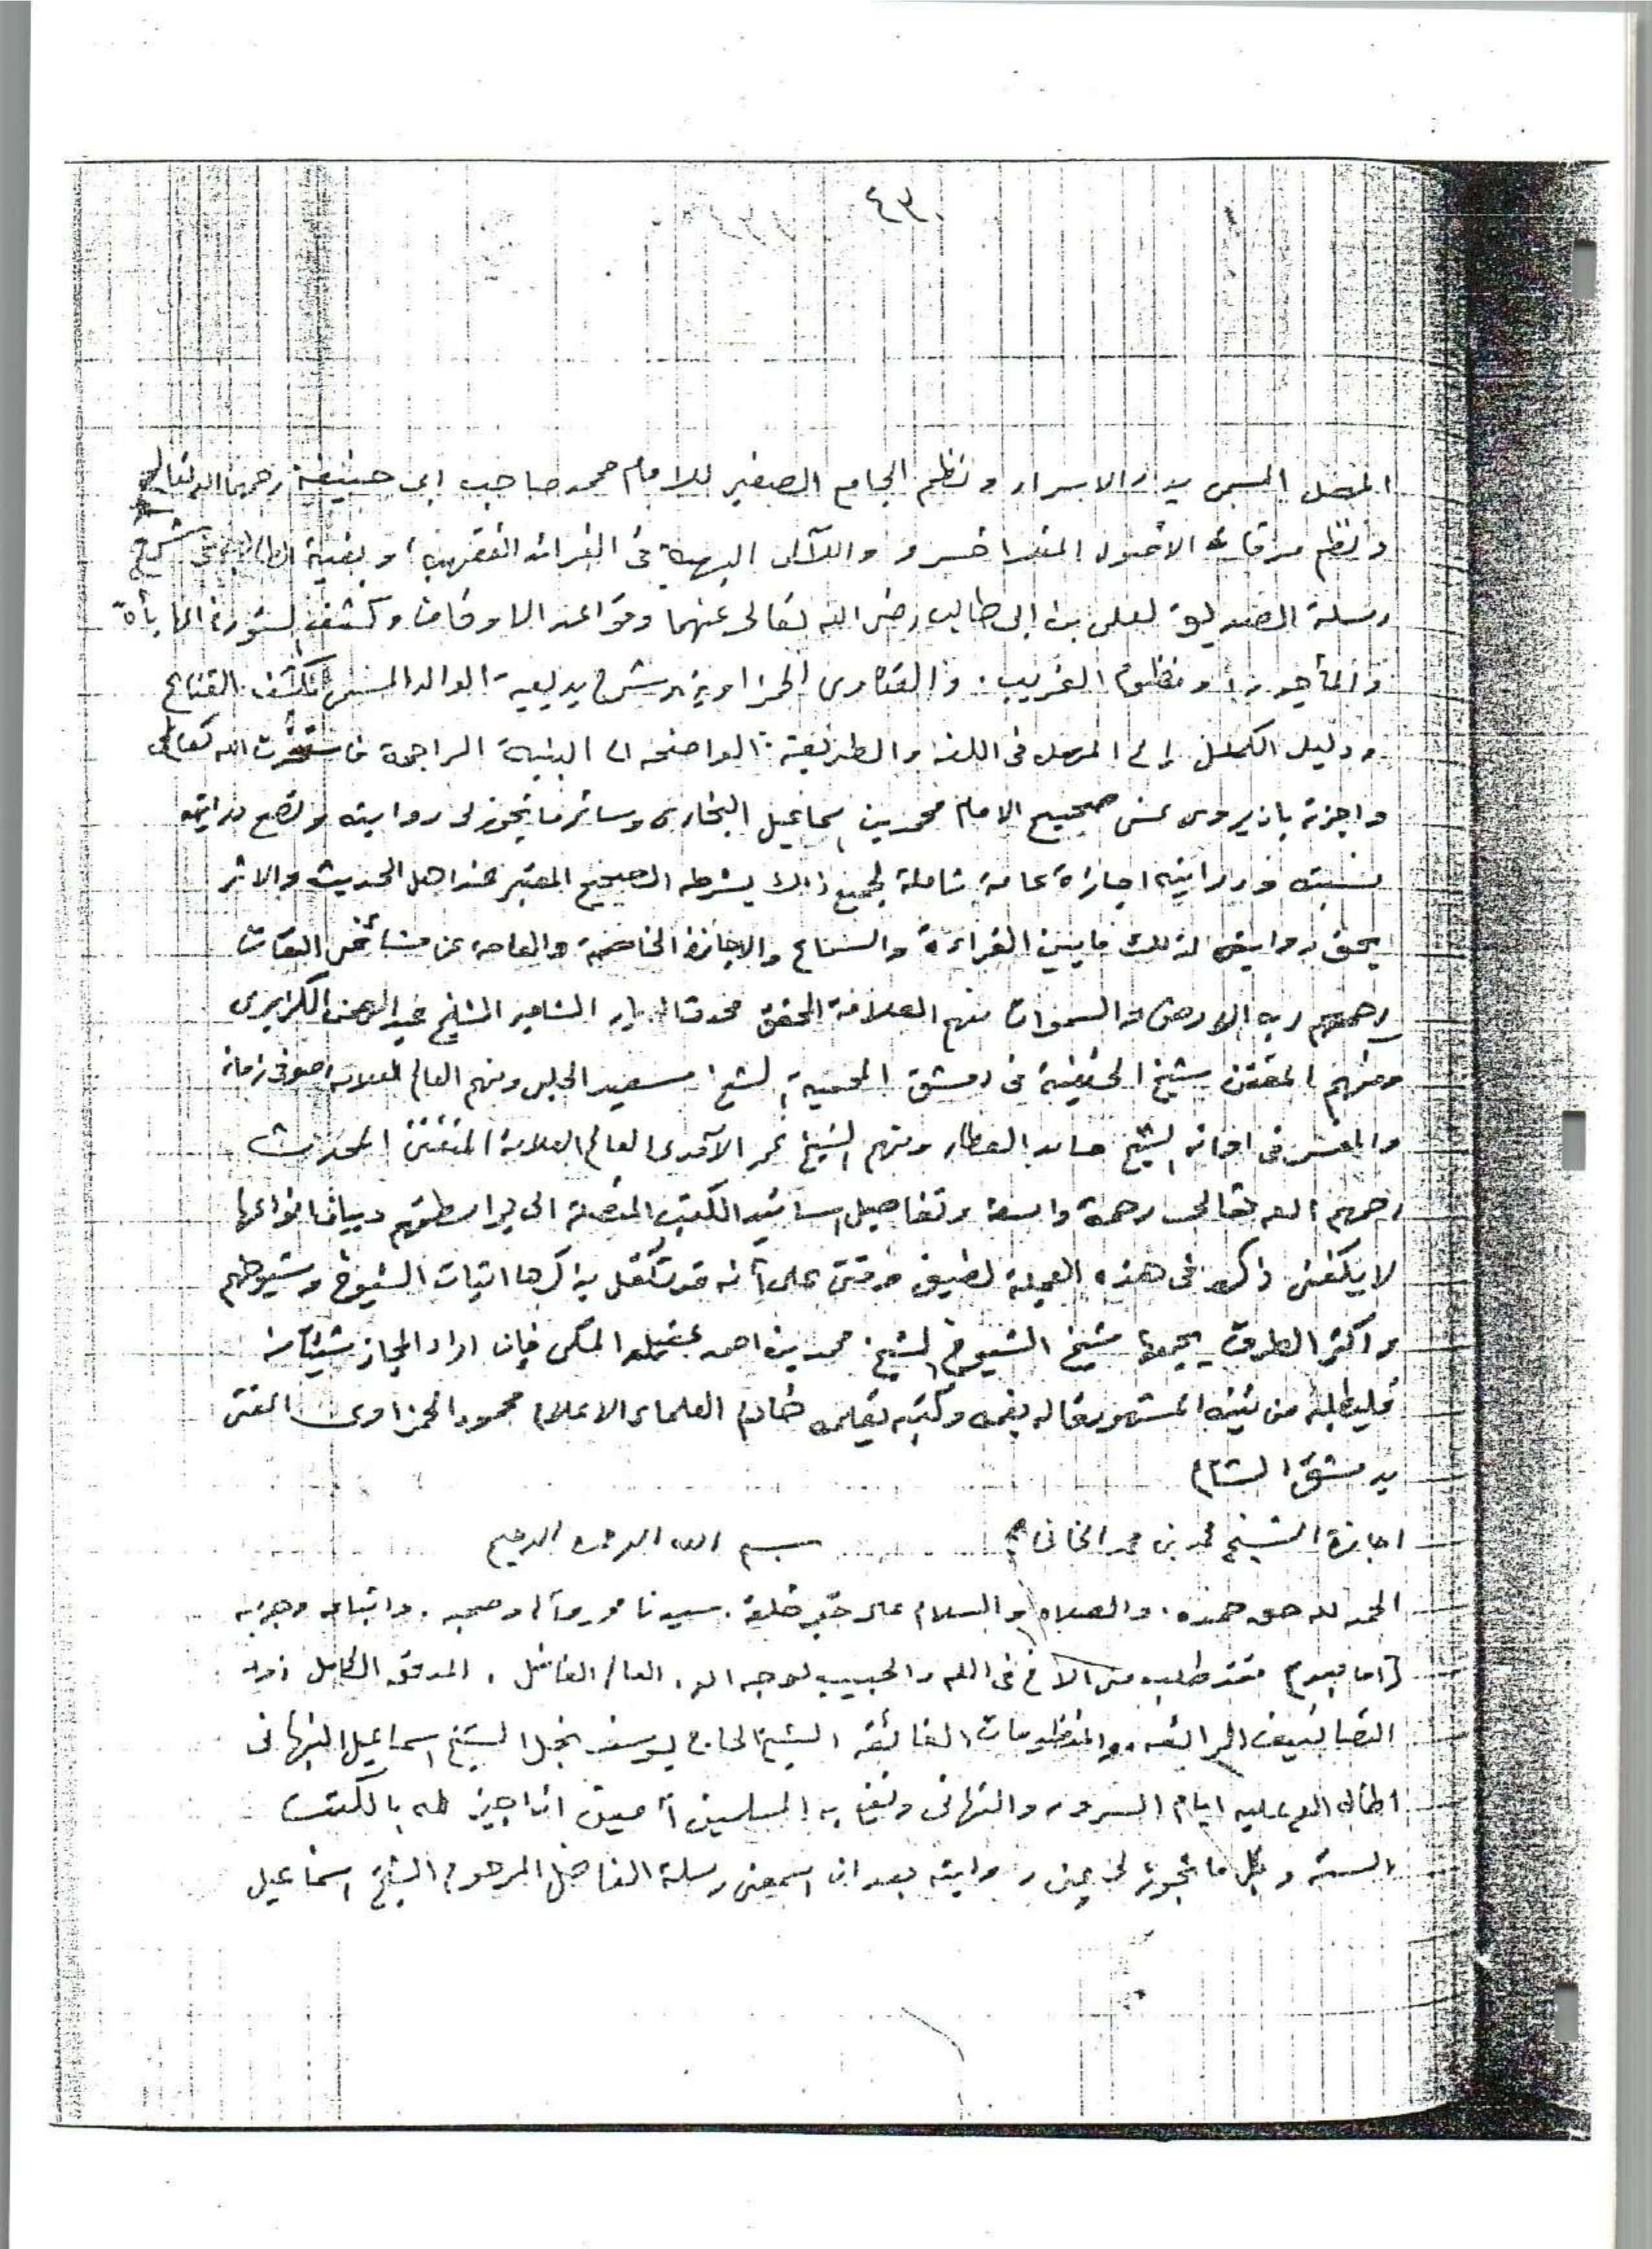 ٤٣
المهمل المسمى بدر الاسرار ونظم الجامع الصغير للامام محمد صاحب ابى حنيفة رحمهما الله تعالى
ونظم مرقاة الاصول لمنلا خسرو واللآلى البهية فى الفرائد الفقهية وبغية الطالب فى شرح
رسلة الصديق لعلى بن ابى طالب رضى الله تعالى عنهما وقواعد الاوقاف وكشف
ومنظومة الغريب . والفتاوى الحمزاوية وشرح بديعية الوالد المسمى بكشف القناع
ودليل الكمل الى المهمل فى اللغة والطريقة الواضحة الى البينة الراجحة فاستخرت الله تعالى
واجزته بان يروى عنى صحيح الامام محمد بن اسماعيل البخارى وسائر ما تجوز لى روايته وتصح درايته
اجازة عامة شاملة لجميع ذلك بشرطه الصحيح المعتبر عند اهل الحديث والاثر
بحق روايتى لذلك ما بين القراءة والسماع والاجازة الخاصة والعامة عن مشائخى الثقات
رحمهم رب الارض والسموات منهم العلامة المحقق محدث الديار الشامية الشيخ عبد الرحمن الكزبرى
ومنهم المتقن شيخ الحنفية فى دمشق المحمية الشيخ سعيد الحلبى ومنهم العالم العلامة صوفى زمانه
والمفسر فى اوانه الشيخ حامد العطار ومنهم الشيخ عمر الآمدى العالم العلامة المتفنن المحدث
رحمهم الله تعالى رحمة واسعة وتفاصيل اسانيد الكتب المتصلة الى بواسطتهم وبيان انواعها
لا يمكننى ذكره فى هذه العجلة لضيق وقتى على انه قد تكفل بذكرها اثبات الشيوخ وشيوخهم
واكثر الطرق يجمعها شيخ الشيوخ الشيخ محمد بن احمد عقيله المكى فان اراد المجاز شيئا منه
فليطلبه من ثبته المشهور قاله بفمه وكتبه بقلمه خادم العلماء الاعلام محمود الحمزاوى المفتى
بدمشق الشام
اجازة الشيخ محمد بن محمد الخانى بسم الله الرحمن الرحيم
الحمد لله حق حمده . والصلاة والسلام على خير خلقه . سيدنا محمد وآله وصحبه . واتباعه وحزبه
(اما بعد) فقد طلب منى الاخ فى الله والحبيب لوجه الله . العالم الفاضل . المدقق الكامل ذو
التصانيف الرائقه . والمنظومات الفائقه الشيخ الحاج يوسف نجل الشيخ اسماعيل النبهانى
اطال الله عليه ايام السرور والتهانى ونفع به المسلمين آمين ان اجيز له بالكتب
الستة وبكل ما تجوز لى عنى روايته بعد ان اسمعنى رسلة الفاضل المرحوم الشيخ اسماعيل